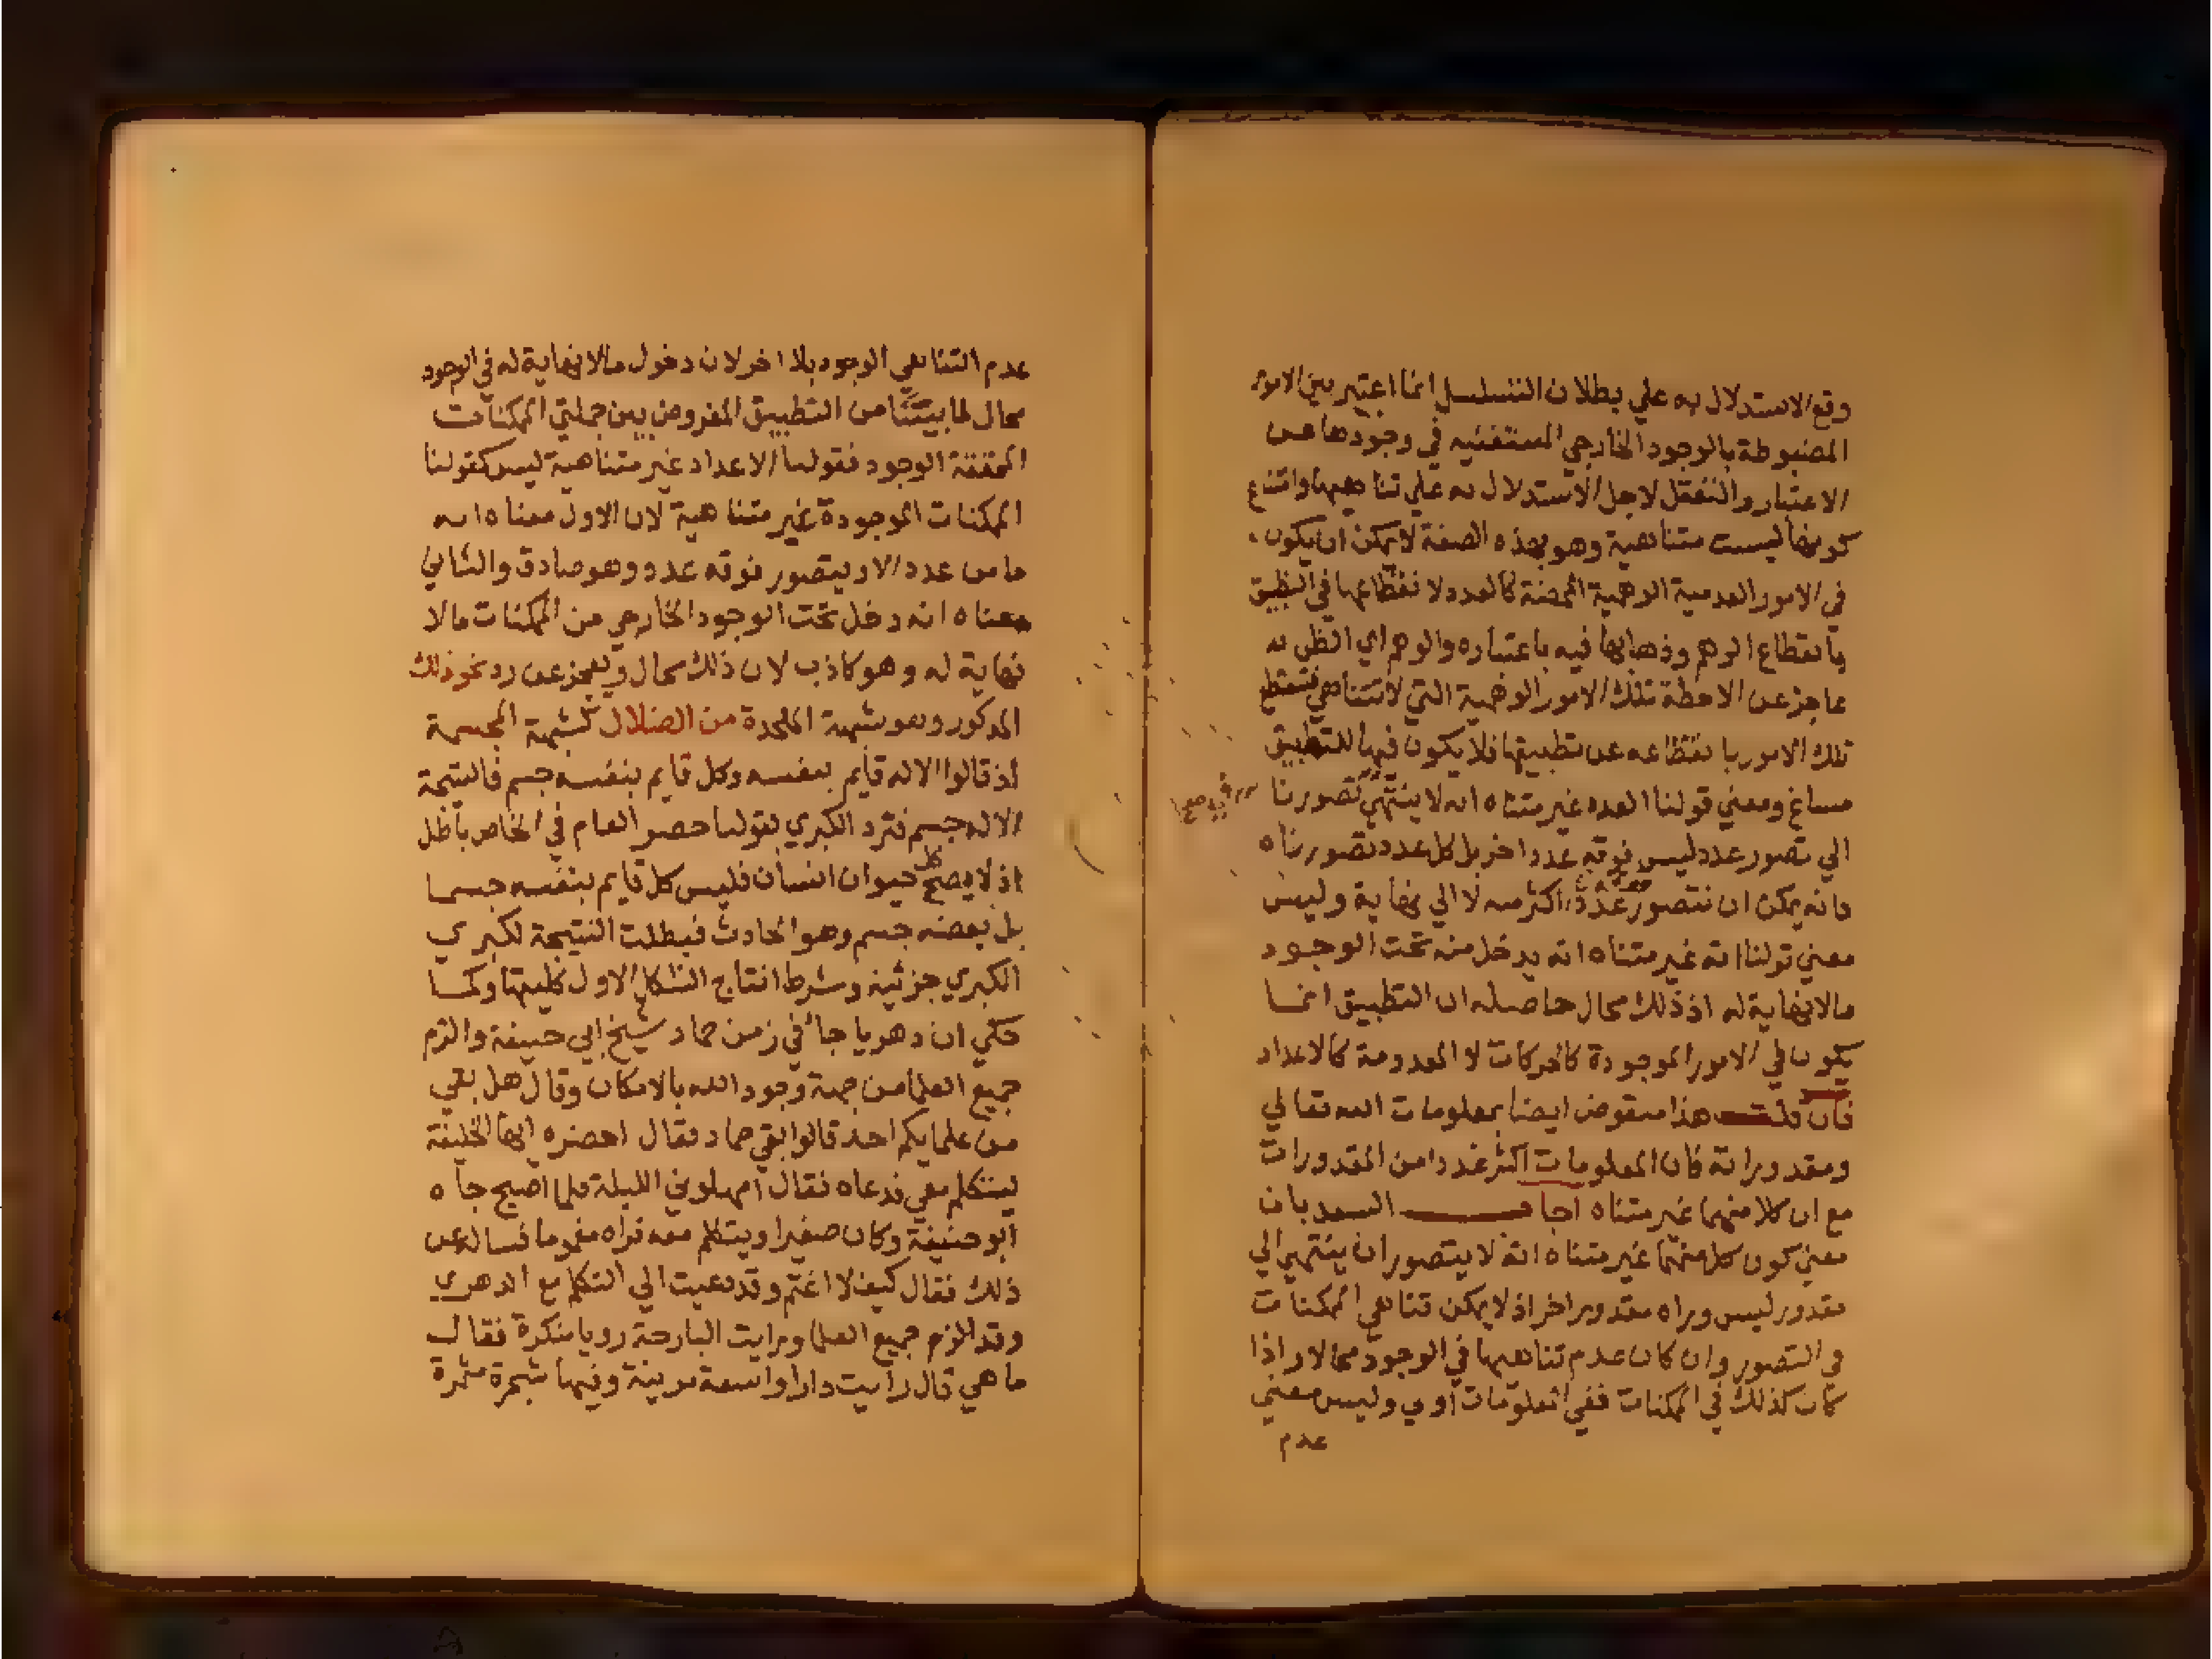 وقع الاستدلال به علي بطلان التسلسل انما اعتبر بين الامور
المضبوطة بالوجود الخارجي المستغنيه في وجودها عن
الاعتبار والتعقل لاجل الاستدلال به علي تناهيها وامتناع
كونها ليست متناهية وهو بهذه الصفة لا يمكن ان يكون
في الامور العدمية الوهمية المحضة كالعدد لانقطاعها في التطبيق
بانقطاع الوهم وذهابها فيه باعتباره والوهم اي الظن به
عاجز عن الاحطة تلك الامور الوهمية التي لا تتناهي فتنقطع
تلك الامور بانقطاعه عن تطبيقها فلا يكون فيها للتطبيق
مساغ ومعني قولنا العدد غير متناه انه لا ينتهي تصورنا
الي تصور عدد ليس فوقه عدد اخر بل كل عدد تصورناه
فانه يمكن ان نتصور عددا اكثر منه لا الي نهاية وليس
معني قولنا انه غير متناه انه يدخل منه تحت الوجود
مالا نهاية له اذ ذلك محال حاصله ان التطبيق انما
يكون في الامور الموجودة كالحركات لا المعدومة كالاعداد
فان قلت هذا منقوض ايضا بمعلومات الله تعالي
ومقدوراته فان المعلومات اكثر عددا من المقدورات
مع ان كلا منهما غير متناه اجاب السعد بان
معني كون كل منهما غير متناه انه لا يتصور ان ينتهي الي
مقدور ليس وراه مقدور اخر اذ لا يمكن تناهي الممكنات
في التصور وان كان عدم تناهيها في الوجود محالا واذا
كان كذلك في الممكنات ففي المعلومات اولي وليس معني
عدم
عدم التناهي الوجود بلا اخر لان دخول مالا نهاية له في الوجود
محال لما بيننا من التطبيق المفروض بين جملتي الممكنات
المحققة الوجود فقولنا الاعداد غير متناهية ليس كقولنا
الممكنات الموجودة غير متناهية لان الاول معناه انه
ما من عدد الا ويتصور فوقه عدد وهو صادق والثاني
معناه انه دخل تحت الوجود الخارجي من الممكنات مالا
نهاية له وهو كاذب لان ذلك محال ويعجز عن رد نحو ذلك
المذكور وهو شبهة الملحدة من الضلال كشبهة المجسمة
اذ قالوا الاله قايم بنفسه وكل قايم بنفسه جسم فالنتيجة
الاله جسم فترد الكبري بقولنا حصر العام في الخاص باطل
اذ لا يصح كل حيوان انسان فليس كل قايم بنفسه جسما
بل بعضه جسم وهو الحادث فبطلت النتيجة لكبري
الكبري جزئية وشرط انتاج الشكل الاول كليتها وكما
حكي ان دهريا جاء في زمن حماد شيخ ابي حنيفة والزم
جميع العلما من جهة وجود الله بالامكان وقال هل بقي
من علمايكم احد قالوا بقي حماد فقال احضره ايها الخليفة
ليتكلم معي فدعاه فقال امهلوني الليلة فلما اصبح جاه
ابو حنيفة وكان صغيرا ويتكلم معه فراه مغموما فساله عن
ذلك فقال كيف لا اغتم وقد دعيت الي التكلم مع الدهري
وقد الزم جميع العلما ورايت البارحة رويا منكرة فقال
ما هي قال رايت دارا واسعة مزينة وفيها شجرة مثمرة